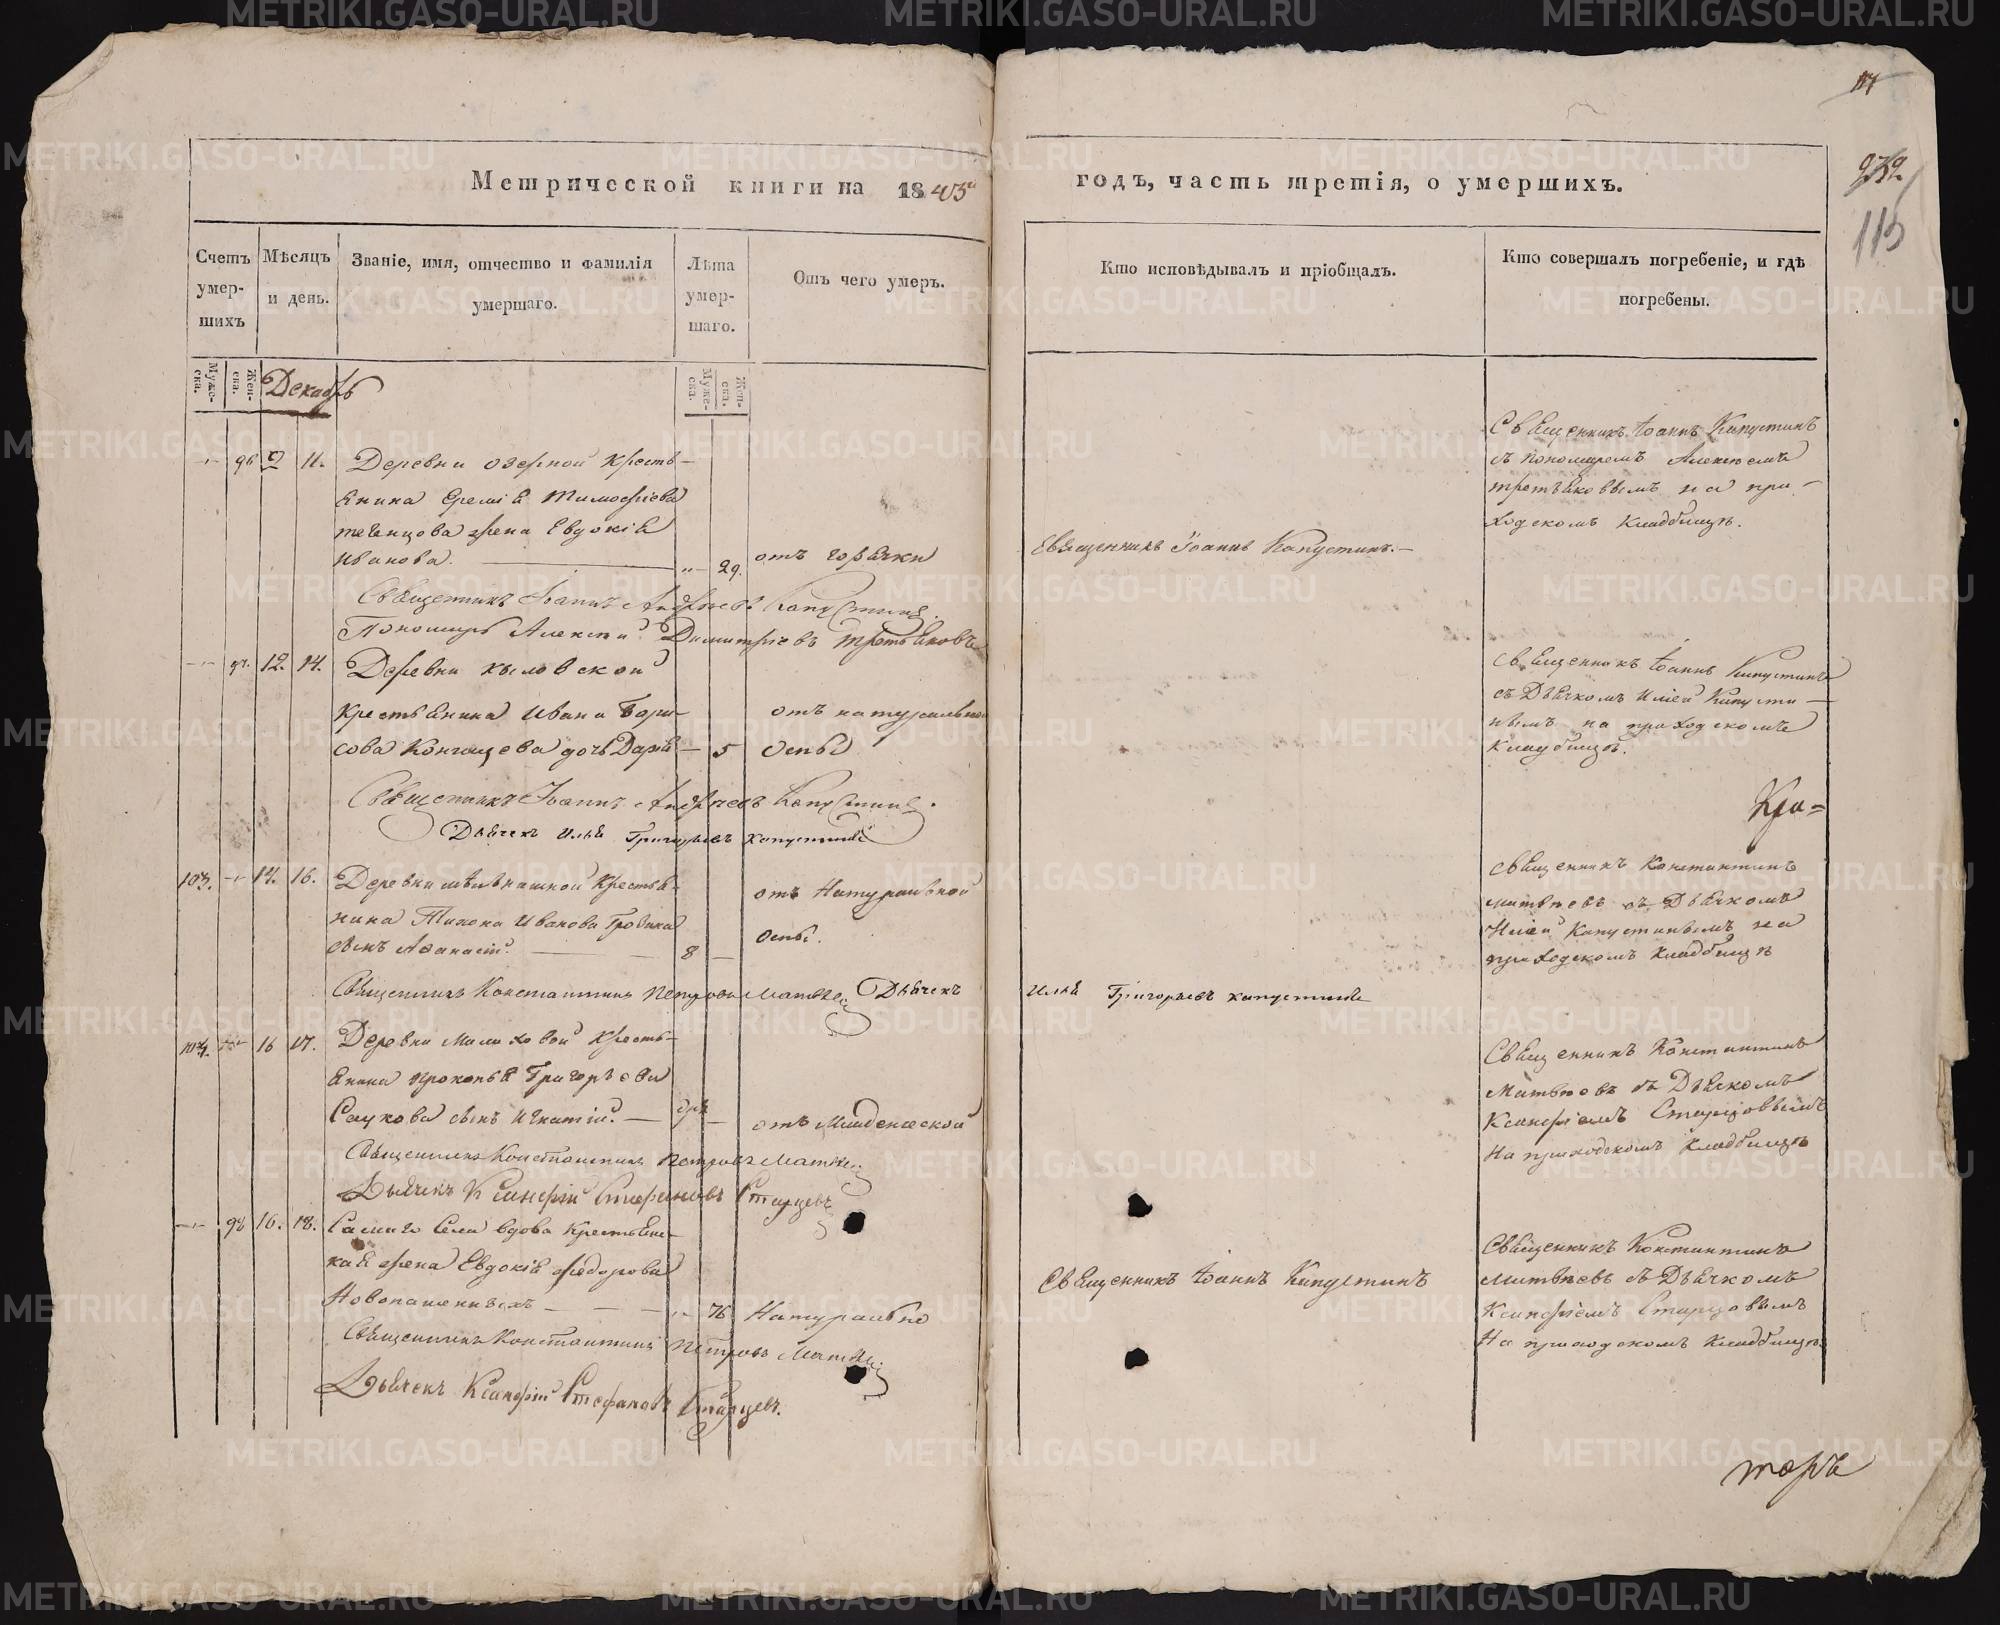 Метрической книги на 1845й годъ, часть третія, о умершихъ.
Счетъ умер-шихъ
Мѣсяцъ и день.
Званіе, имя, отчество и фамилія умершаго.
Лѣта умер-шаго.
Отъ чего умеръ.
Кто исповѣдывалъ и пріобщалъ.
Кто совершалъ погребеніе, и гдѣ погребены.
Муже-ска.
Жен-ска.
Муже-ска.
Жен-ска.
Декабрь
96 9 11.
Деревни Озерной крестья-
янина Еремія Тимофѣева
жена Евдокія
Иванова.
29.
отъ горячки
Священникъ Іоаннъ Капустинъ.
Священникъ Іоаннъ Капустинъ
съ пономаремъ Алексіемъ
Третьяковымъ на при-
ходскомъ кладбищѣ.
Священникъ Іоаннъ Андреевъ Капустинъ.
Пономарь Алексій Димитріевъ Третьяковъ
97. 12. 14.
Деревни
крестьянина Ивана Бори-
сова дочь Дарія
5
отъ натуральной
оспы
Священникъ Іоаннъ Капустинъ
съ Дьячкомъ Иліей Капусти-
нымъ на приходскомъ
кладбищѣ.
Священникъ Іоаннъ Андреевъ Капустинъ.
Дьячекъ Илья Григорьевъ Капустинъ
Кра=
103. 14. 16.
Деревни крестья-
нина Тихона Иванова
сынъ Афанасій.
8
отъ Натуральной
оспы.
Священникъ Константинъ
Матвѣевъ съ Дьячкомъ
Иліей Капустинымъ на
приходскомъ кладбищѣ
Священникъ Константинъ Петровъ Матвѣевъ Дьячекъ Илья Григорьевъ Капустинъ
104. 16 17.
Деревни Малаховой кресть-
янина Прокопья Григорьева
сынъ Игнатій.
отъ Младенческой
Священникъ Константинъ
Матвѣевъ съ Дьячкомъ
Ксанфіемъ Старцовымъ
На приходскомъ кладбищѣ
Священникъ Константинъ Петровъ Матвѣевъ
Дьячекъ Ксанфій Стефановъ Старцевъ
98 16. 18.
Самаго Села вдова крестьянс-
кая жена Евдокія Федорова
Новопашенныхъ
76
Натурально
Священникъ Іоаннъ Капустинъ
Священникъ Константинъ
Матвѣевъ съ Дьячкомъ
Ксанфіемъ Старцовымъ
На приходскомъ кладбищѣ
Священникъ Константинъ Петровъ Матвѣевъ
Дьячекъ Ксанфій Стефановъ Старцевъ.
115